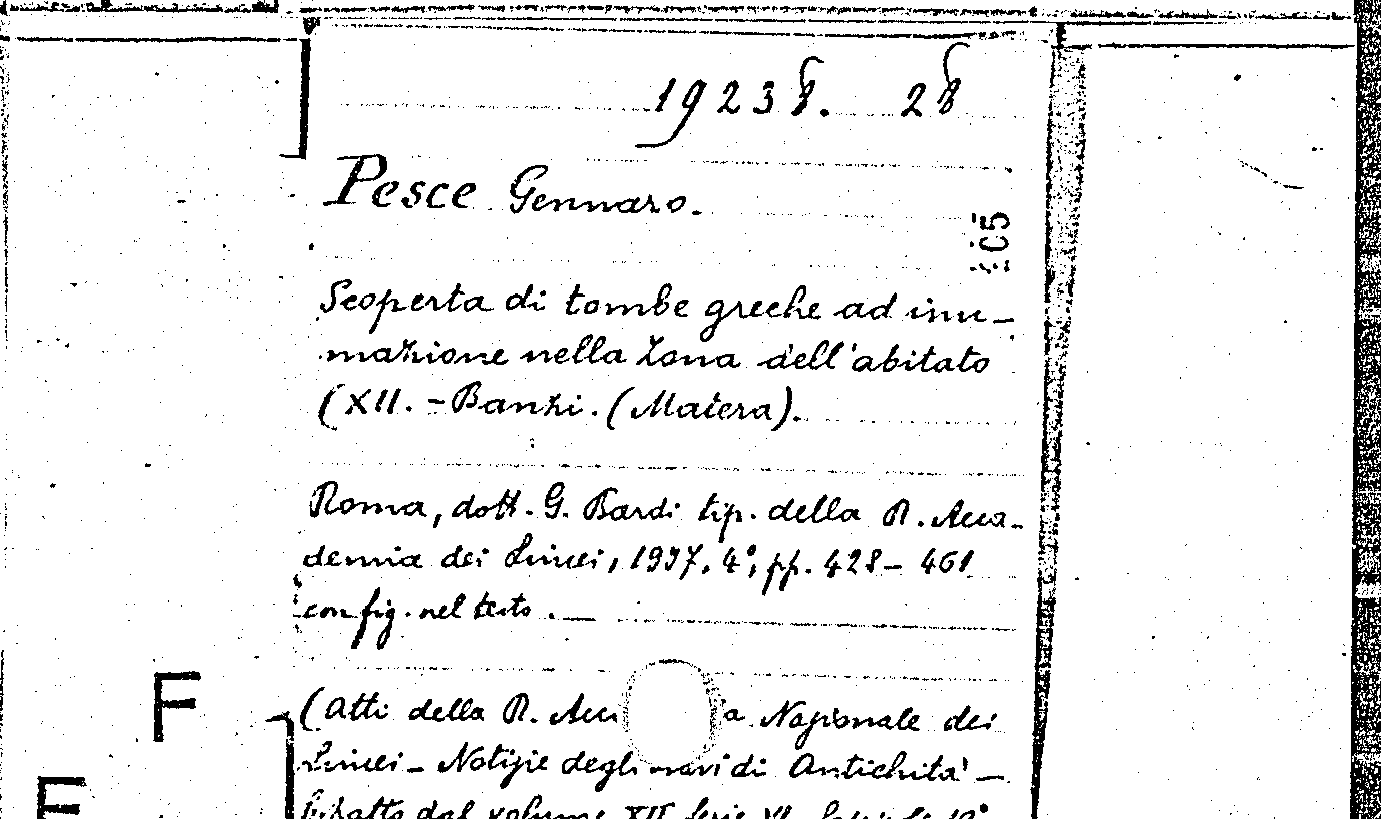 19238. 28
Pesce Gennaro.
Scoperta di tombe greche ad inu-
mazione nella zona dell'abitato
(XII. - Banzi. (Matera).
Roma, dott. G. Bardi tip. della R. Acca-
demia dei Lincei, 1937. 4°, pp. 428 - 461
con fig. nel testo. —
(Atti della R. Acc a Nazionale dei
Lincei - Notizie degli di Antichità -
Estratto dal volume XII Serie VI
F
E